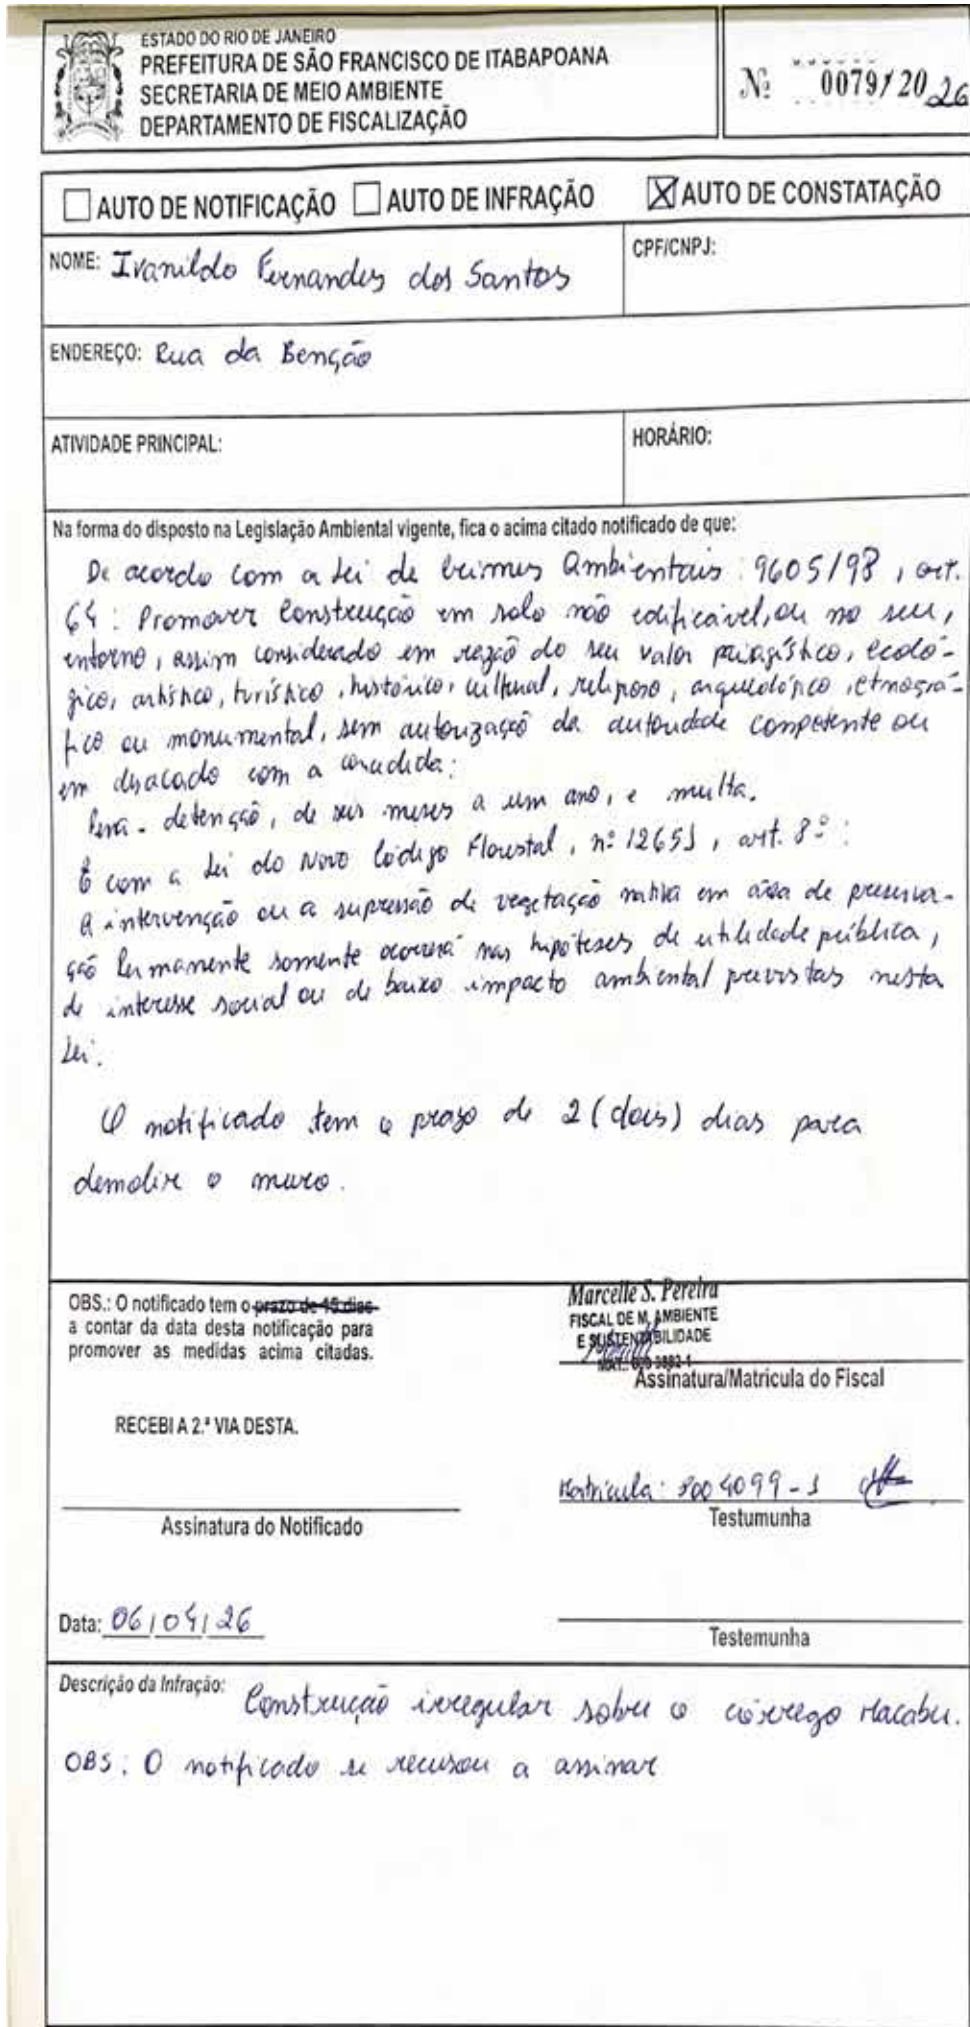 ESTADO DO RIO DE JANEIRO
PREFEITURA DE SÃO FRANCISCO DE ITABAPOANA
SECRETARIA DE MEIO AMBIENTE
DEPARTAMENTO DE FISCALIZAÇÃO
Nº 0079/2026
AUTO DE NOTIFICAÇÃO AUTO DE INFRAÇÃO X AUTO DE CONSTATAÇÃO
NOME: Ivanildo Fernandes dos Santos
CPF/CNPJ:
ENDEREÇO: Rua da Benção
ATIVIDADE PRINCIPAL:
HORÁRIO:
Na forma do disposto na Legislação Ambiental vigente, fica o acima citado notificado de que:
De acordo com a Lei de Crimes Ambientais: 9605/98, art.
64: Promover Construção em solo não edificável, ou no seu,
entorno, assim considerado em razão do seu valor paisagístico, ecoló-
gico, artístico, turístico, histórico, cultural, religioso, arqueológico, etnográ-
fico ou monumental, sem autorização da autoridade competente ou
em desacordo com a concedida:
Pena - detenção, de seis meses a um ano, e multa.
E com a Lei do Novo Código Florestal, nº 12651, art. 8º:
A intervenção ou a supressão de vegetação nativa em área de preserva-
ção Permanente somente ocorrerá nas hipóteses de utilidade pública,
de interesse social ou de baixo impacto ambiental previstas nesta
Lei.
O notificado tem o prazo de 2 (dois) dias para
demolir o muro.
OBS.: O notificado tem o prazo de 15 dias
a contar da data desta notificação para
promover as medidas acima citadas.
Marcelle S. Pereira
FISCAL DE M. AMBIENTE
E SUSTENTABILIDADE
Assinatura/Matricula do Fiscal
RECEBI A 2.ª VIA DESTA.
Assinatura do Notificado
Matrícula: 4099-1
Testumunha
Data: 06/04/26
Testemunha
Descrição da Infração: Construção irregular sobre o córrego Macabu.
OBS: O notificado se recusou a assinar